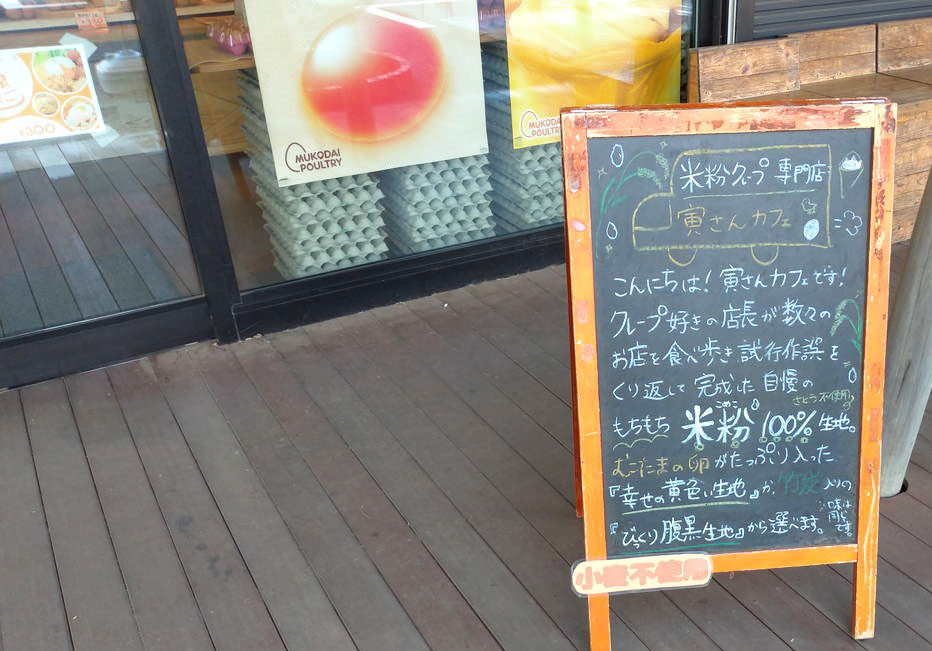 ¥300
MUKODAI
POULTRY
MUKODAI
POULTRY
米粉クレープ専門店
寅さんカフェ
こんにちは!寅さんカフェです!
クレープ好きの店長が数々の
お店を食べ歩き試行作誤を
くり返して完成した自慢の
さとう不使用
もちもち 米粉 100% 生地。
こめこ
むこだまの卵がたっぷり入った
『幸せの黄色い生地』か、竹炭入りの
『びっくり腹黒生地』から選べます。
※味は
同じ
です。
小麦不使用